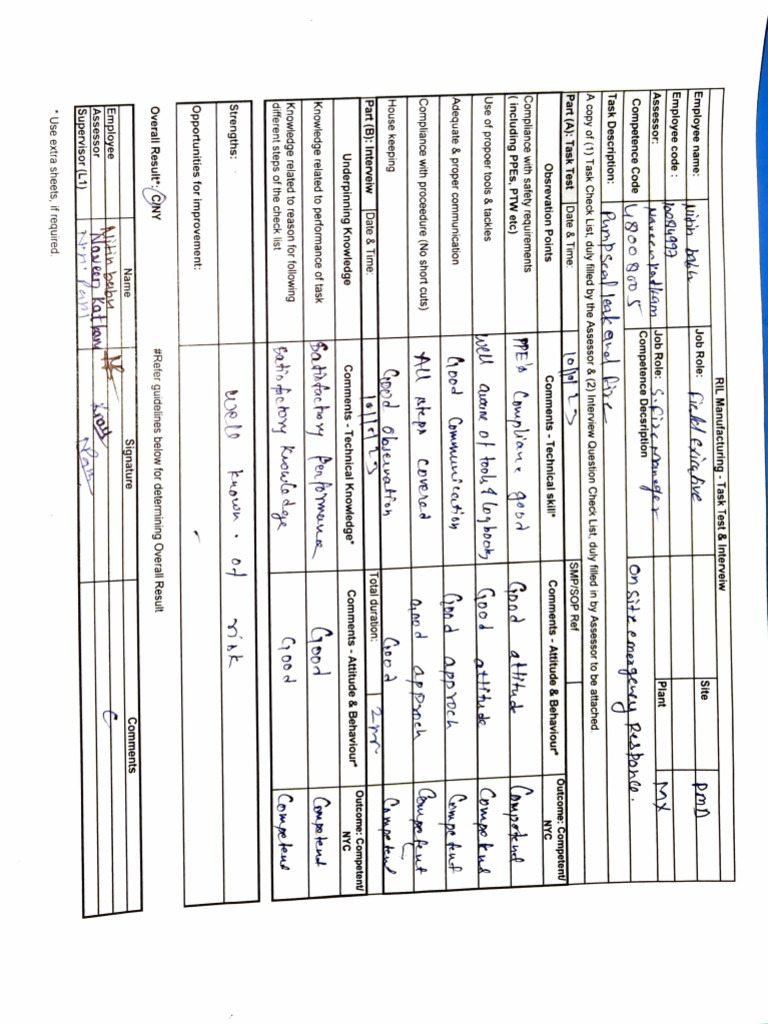 RIL Manufacturing - Task Test & Interveiw
Employee name: Nitin babu Job Role: Field exicative Site PMD
Employee code : 10084997
Assessor: Naveen Katham Job Role: S. Fire Manager Plant MX
Competence Code 48008005 Competence Decsription On site emergency Responce.
Task Description: Pump seal leak and fire
A copy of (1) Task Check List, duly filled by the Assessor & (2) Interview Question Check List, duly filled in by Assessor to be attached.
Part (A): Task Test Date & Time: SMP/SOP Ref
Obsrevation Points Comments - Technical skill* Comments - Attitude & Behaviour* Outcome: Competent/ NYC
Compliance with safety requirements ( including PPEs, PTW etc) PPE's Compliance good Good attitude Competend
Use of propoer tools & tackles well aware of tools & logbook, Good attitude Competend
Adequate & proper communication Good Communication Good approch Competent
Compliance with proceedure (No short cuts) All steps covered Good approch Competent
House keeping Good Observation Good Competend
Part (B): Interveiw Date & Time: Total duration:
Underpinning Knowledge Comments - Technical Knowledge* Comments - Attitude & Behaviour* Outcome: Competent/ NYC
Knowledge related to performance of task Satisfactory Performance Good Competend
Knowledge related to reason for following different steps of the check list Satisfactory Knowledge Good Competend
Strengths: well known . of risk
Opportunities for improvement: -
Overall Result*: C/NY #Refer guidelines below for determining Overall Result
Name Signature Comments
Employee Nitin babu
Assessor Naveen Katham
Supervisor (L1) C
* Use extra sheets, if required.